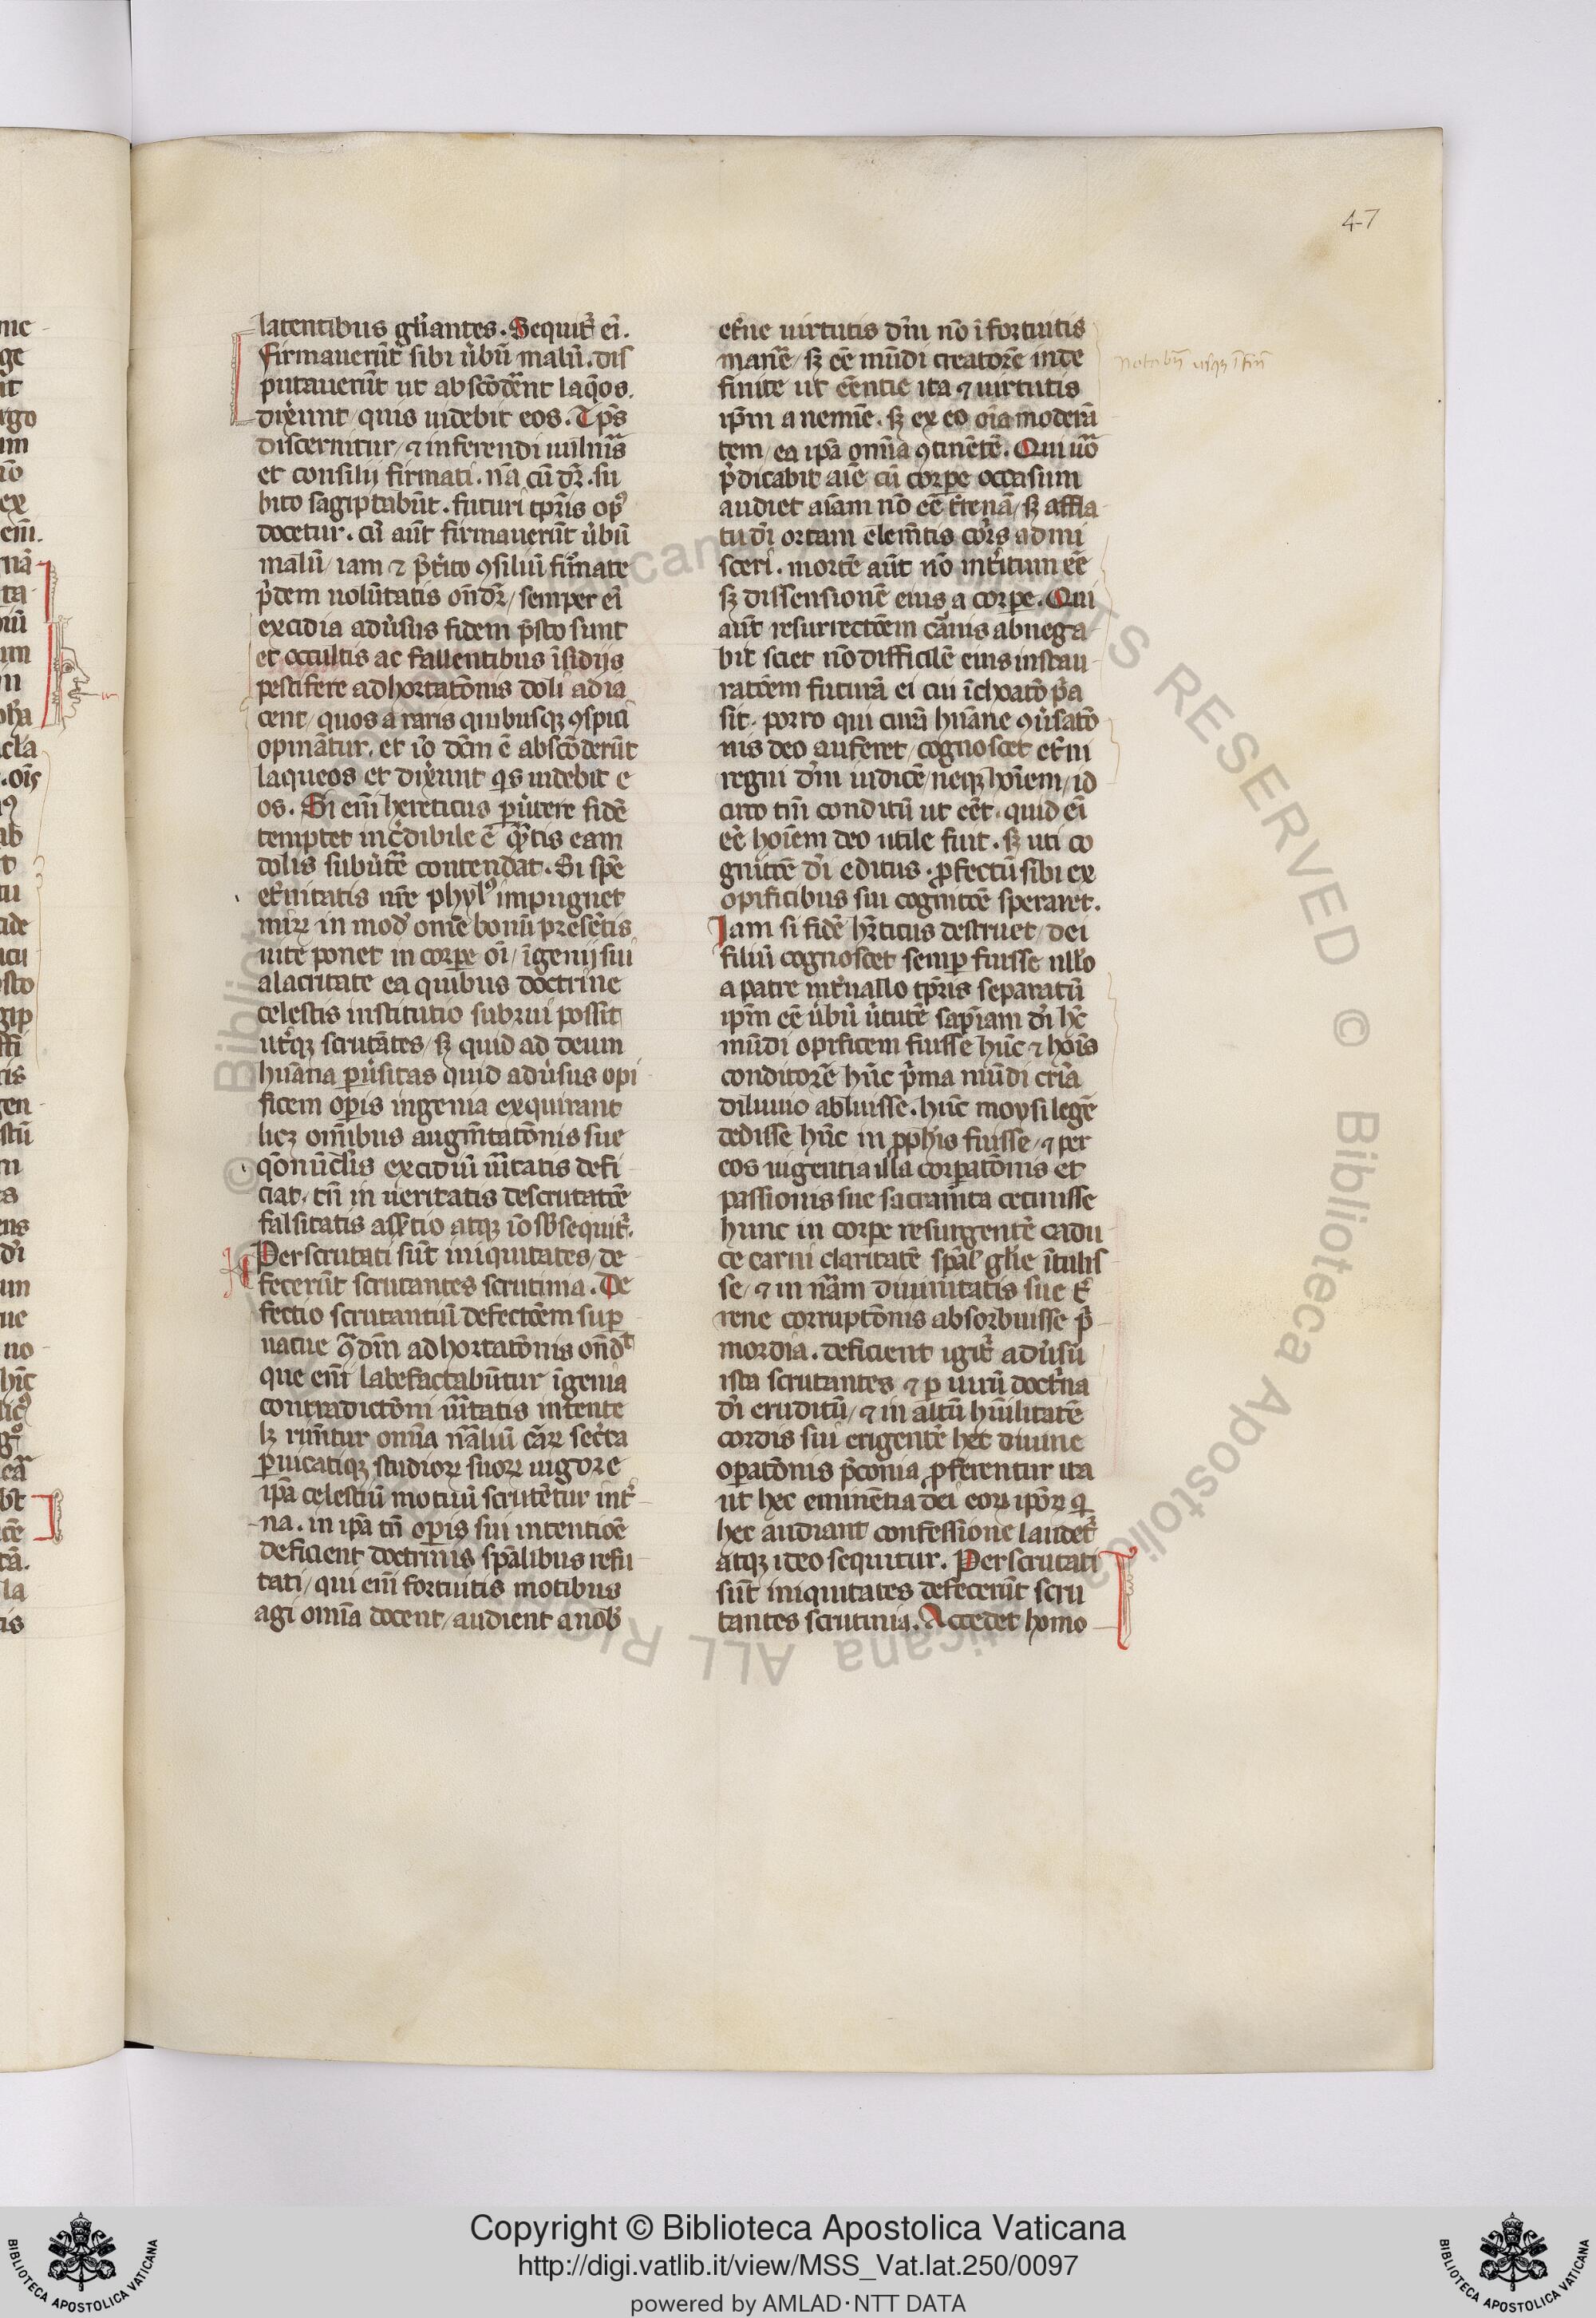 47
latentibus gl̄iantes. Sequit᷑ ei̅.
Firmauerūt sibi u̾bū malū. dis
putauerūt ut abscōde̅nt laq̄os.
dix̾unt / quis uidebit eos. Tp̄s
discernitur / ⁊ inferendi uulnīs
et consilij firmati. nā cū dr̄. su
bito sagiptabūt. futuri tp̄ris opꝰ
docetur. cū aūt firmauerūt u̾bū
malū / iam ⁊ p̄t̾ito ꝯsiliū firmate
p̾dem uolūtatis on̄dr̄ / semper ei̅
excidia adu̾sus fidem p̄sto sunt
et occultis ac fallentibus īsidijs
pestifere adhortatōnis doli adia
cent / quos a raris quibusqꝫ ꝯspici
opināt̄ur. et iō dc̄m ē abscōderūt
laqueos et dix̾unt qͥs uidebit e
os. Si eni̅ hereticus ꝑu̾tere fidē
temptet inc̾dibile ē qͣntis eam
dolis subu̾t̄e contendat. Si spē
et̾nitatis nr̄e phylꝰ impugnet
mirꝝ in mod̾ om̄e bonū presētis
uite ponet in corꝑe oi̅ / īgenij sui
alacritate ea quibus doctrine
celestis institutio subrui possit
ut̾qꝫ scrutātes / sꝫ quid ad deum
huāna ꝑu̾sitas quid adu̾sus opi
ficem oꝑis ingenia exquirant
licꝫ om̄ibus augm̄tatōnis sue
excidiū uītatis defi
ciat / tn̄ in ueritatis descrutatōe
falsitatis ass̾tio atqꝫ iō sb̾sequit᷑.
Perscrutati sūt iniquitates / de
fecerūt scrutantes scrutinia. De
fectio scrutantiū defectōem suꝑ
uacue qͣdm̄ adhortatōnis on̄dᵗ
que eni̅ labefactabūtur īgenia
contradictōni uītatis intente
lꝫ rim̄tur om̄ia nāliū cārꝝ sec̾ta
ꝑuicatiqꝫ studiorꝝ suorꝝ uigore
ip̄a celestiū motuū scrutētur int̾
na. in ip̄a tn̄ oꝑis sui intentiōe
deficient doctrinis sp̄alibus refu
tati / qui eni̅ fortuitis motibus
agi om̄ia docent / audient a nob̾
et̾ne uirtutis dm̄ nō ī fortuitis
manē / sꝫ eē mūdi creatorē inde
finite ut eēntie ita ⁊ uirtutis
ip̄m a nemīe. sꝫ ex eo oīa moderā
tem / ea ipā om̄ia ꝯtinētē. Qui uō
p̾dicabit aīe cū corꝑe occasum
audiet aīam nō eē t̾renā / sꝫ affla
tu dī ortam elem̄tis corꝑis admi
sceri. mortē aūt nō int̾itum eē
sꝫ dissensionē eius a corꝑe. Qui
aūt resurrectōem cār̾nis abnega
bit sciet nō difficilē eius instau
ratōem futurā ei cui īchoatō p̄a
sit. porro qui curā huāne ꝯu̾satō
nis deo auferet / cognoscet et̾ni
regni dm̄ iudicē / neqꝫ hoi̅em / id
circo tm̄ conditū ut eēt. quid ei̅
eē hoi̅em deo utile fuit. sꝫ uti co
gnitōe dī editus. ꝓfectū sibi ex
opificibus sui cognitōe speraret.
Iam si fidē hr̄ticus destruet / dei
filiū cognoscet semꝑ fuisse nllo
a patre int̾uallo tp̄ris separatū
ip̄m eē u̾bū u̾tutē sap̄iam dī hc̄
mūdi opificem fuisse hūc ⁊ hoi̅s
conditorē hūc p̾ma mūdi cri̅a
diluuio abluisse. hūc moysi legē
dedisse hūc in ꝓph̄is fuisse / ⁊ per
eos uigentia illa corꝑatōnis et
passionis sue sacram̄ta cecinisse
hunc in corꝑe resurgentē cadu
ce carni claritatē sp̄al̾ gl̄ie ītulis
se / ⁊ in nām diuinitatis sue t̾
rene corruptōnis absorbuisse p̾
mordia. deficient igit᷑ adu̾sū
ista scrutantes ⁊ ꝑ uirū doct̾na
dī eruditū / ⁊ in altū hūilitatē
cordis sui erigentē hec diuine
oꝑatōnis p̄conia ꝓferentur ita
ut hec eminētia dei eorꝝ ip̄orꝝ q̄
hec audiant confessīone laudet᷑
atqꝫ ideo sequitur. Perscrutati
sūt iniquitates defecerūt scru
tantes scrutinia. Accedet homo
© Biblioteca Apostolica Vaticana ALL RIGHTS RESERVED
Copyright © Biblioteca Apostolica Vaticana
http://digi.vatlib.it/view/MSS_Vat.lat.250/0097
powered by AMLAD·NTT DATA
BIBLIOTECA APOSTOLICA VATICANA
BIBLIOTECA APOSTOLICA VATICANA